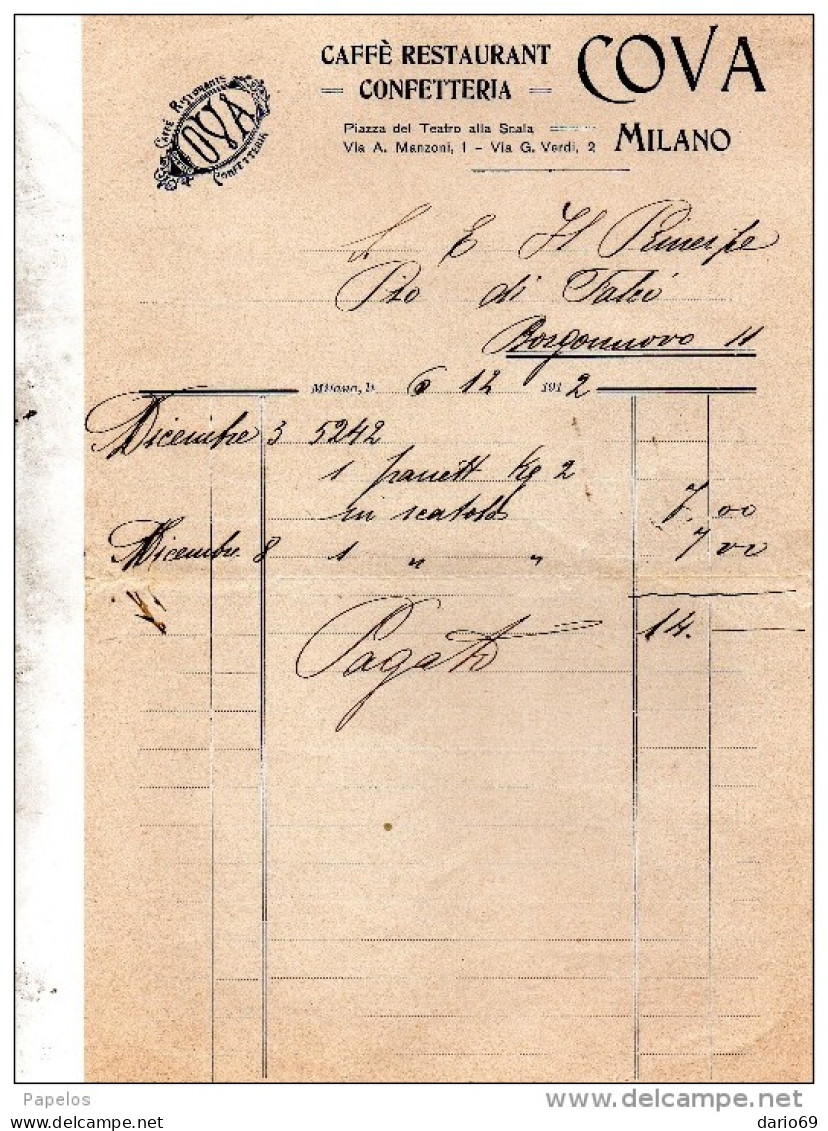 CAFFÈ RISTORANTE
COVA
CONFETTERIA
CAFFÈ RESTAURANT
CONFETTERIA
COVA
Piazza del Teatro alla Scala
Via A. Manzoni, 1 - Via G. Verdi, 2
MILANO
A E Il Principe
Pio di
Borgonuovo 11
Milano, li 6 12 1912
Dicembre 3 5242
1 panett Kg 2
in scatola 7.00
Dicembre 8 1 " " 7 00
14.
Pagato
Papelos
www.delcampe.net
dario69